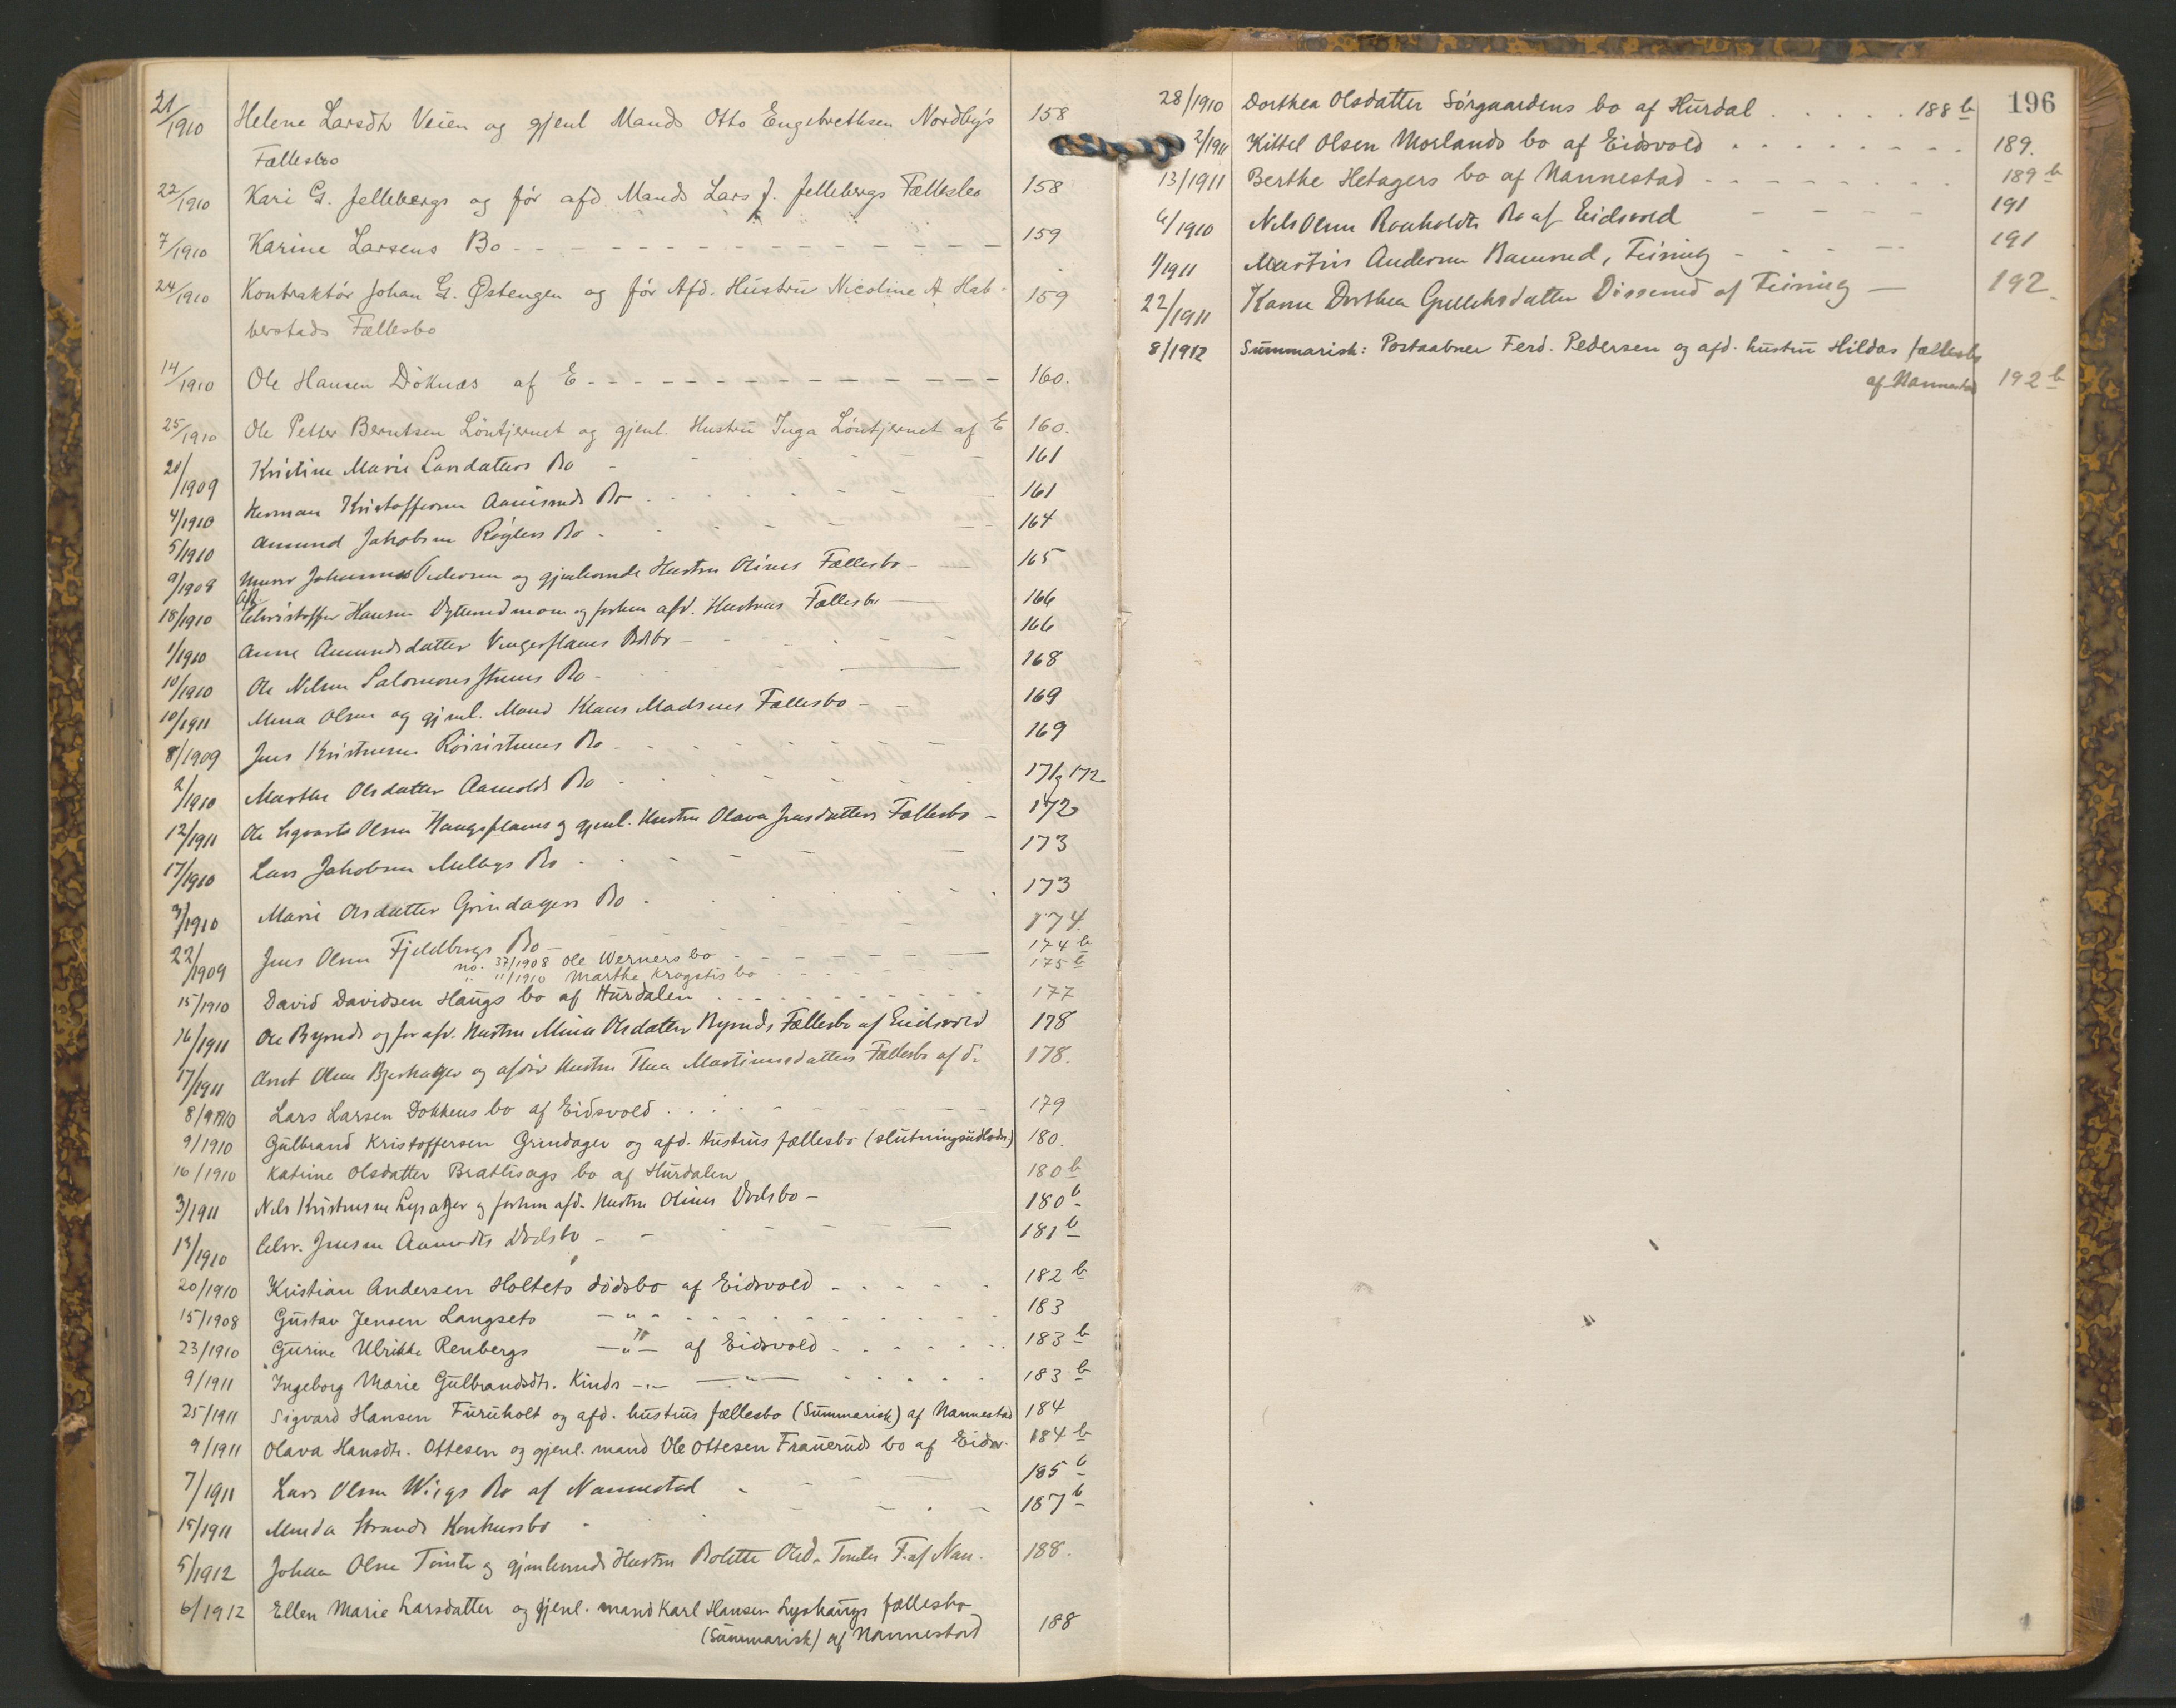 21/1910 Helene Larsdtr Veien og gjenl Mands Otto Engebrethsen Nordby's 158
Fællesbo
22/1910 Kari G. Jellebergs og før afd. Mands Lars J. Jellebergs Fællesbo 158
7/1910 Karine Larsens Bo 159
24/1910 Kontraktör Johan G. Østengen og för Afd. Hustru Nicoline A Hab- 159
berstads Fællesbo
14/1910 Ole Hansen Döknæs af E 160.
25/1910 Ole Petter Berntsen Löntjernet og gjenl. Hustru Inga Löntjernet af E 160.
20/1909 Kristine Marie Larsdatters Bo 161
4/1910 Herman Kristoffersen Bo 161
5/1910 Amund Jakobsen Røglers Bo 164
9/1908 Murer Johannes Pedersen og gjenlevende Hustru Olines Fællesbo 165
18/1910 Afd. Christoffer Hansen og forhen afd. Hustrus Fællesbo 166
1/1910 Anne Amundsdatter Bo 166
10/1910 Ole Nilsen Bo 168
10/1911 Mina Olsen og gjenl. Mand Klaus Madsens Fællesbo 169
8/1909 Jens Kristensen Bo 169
2/1910 Marthe Olsdatter Bo 171 og 172
12/1911 Ole Olsen og gjenl. Hustru Olava Jensdatters Fællesbo 172
17/1910 Lars Jakobsen Melbys Bo 173
3/1910 Marie Olsdatter Grindagers Bo 173
22/1909 Jens Olsen Fjeldbergs Bo 174
no. 37/1908 Ole Werners bo 174 b
" 11/1910 Marthe Krogstis bo 175 b
15/1910 David Davidsen Haugs bo af Hurdalen 177
16/1911 Ole Byruds og før afd. Hustru Mina Olsdatter Byruds Fællesbo af Eidsvold 178
17/1911 Arnt Olsen og Hustru Thea Martinusdatters Fællesbo af do 178.
8/1910 Lars Larsen Dokkens bo af Eidsvold 179
9/1910 Gulbrand Kristoffersen Grindager og afd. Hustrus fællesbo (slutningsudlodn.) 180.
16/1910 Katrine Olsdatter Bratlisags bo af Hurdalen 180 b
3/1911 Nils Kristensen og forhen afd. Hustru Olines Dødsbo 180 b
13/1910 Chr. Jensen Dødsbo 181 b
20/1910 Kristian Andersen Holtets dödsbo af Eidsvold 182 b
15/1908 Gustav Jensen Langsets — " — 183
23/1910 Gurine Ulrikke Renbergs — " — af Eidsvold 183 b
9/1911 Ingeborg Marie Gulbrandsdtr. Kinds — " — — " — 183 b
25/1911 Sigvard Hansen Furuholt og afd. hustrus fællesbo (Summarisk) af Nannestad 184
9/1911 Olava Hansdtr. Ottesen og gjenl. mand Ole Ottesen Frauruds bo af Eidsv. 184 b
7/1911 Lars Olsen Wiigs Bo af Nannestad 185 b
15/1911 Minda Strands Konkursbo 187 b
5/1912 Johan Olsen Tømte og gjenlevende Hustru Bolette Olsd. Tømtes F. af Nan. 188.
6/1912 Ellen Marie Larsdatter og gjenl. mand Karl Hansen Lyshaugs fællesbo
(Summarisk) af Nannestad 188
196
28/1910 Dorthea Olsdatter Sörgaardens bo af Hurdal 188 b
2/1911 Kittel Olsen Morlands bo af Eidsvold 189.
13/1911 Berthe Hetagers bo af Nannestad 189 b
6/1910 Nils Olsen Raaholdts Bo af Eidsvold 191
1/1911 Martin Andersen Feiring 191
22/1911 Karen Dorthea Gulliksdatter Disserud af Feiring 192
8/1912 Summarisk: Postaabner Ferd. Pedersen og afd. hustru Hildas fællesbo
af Nannestad 192 b